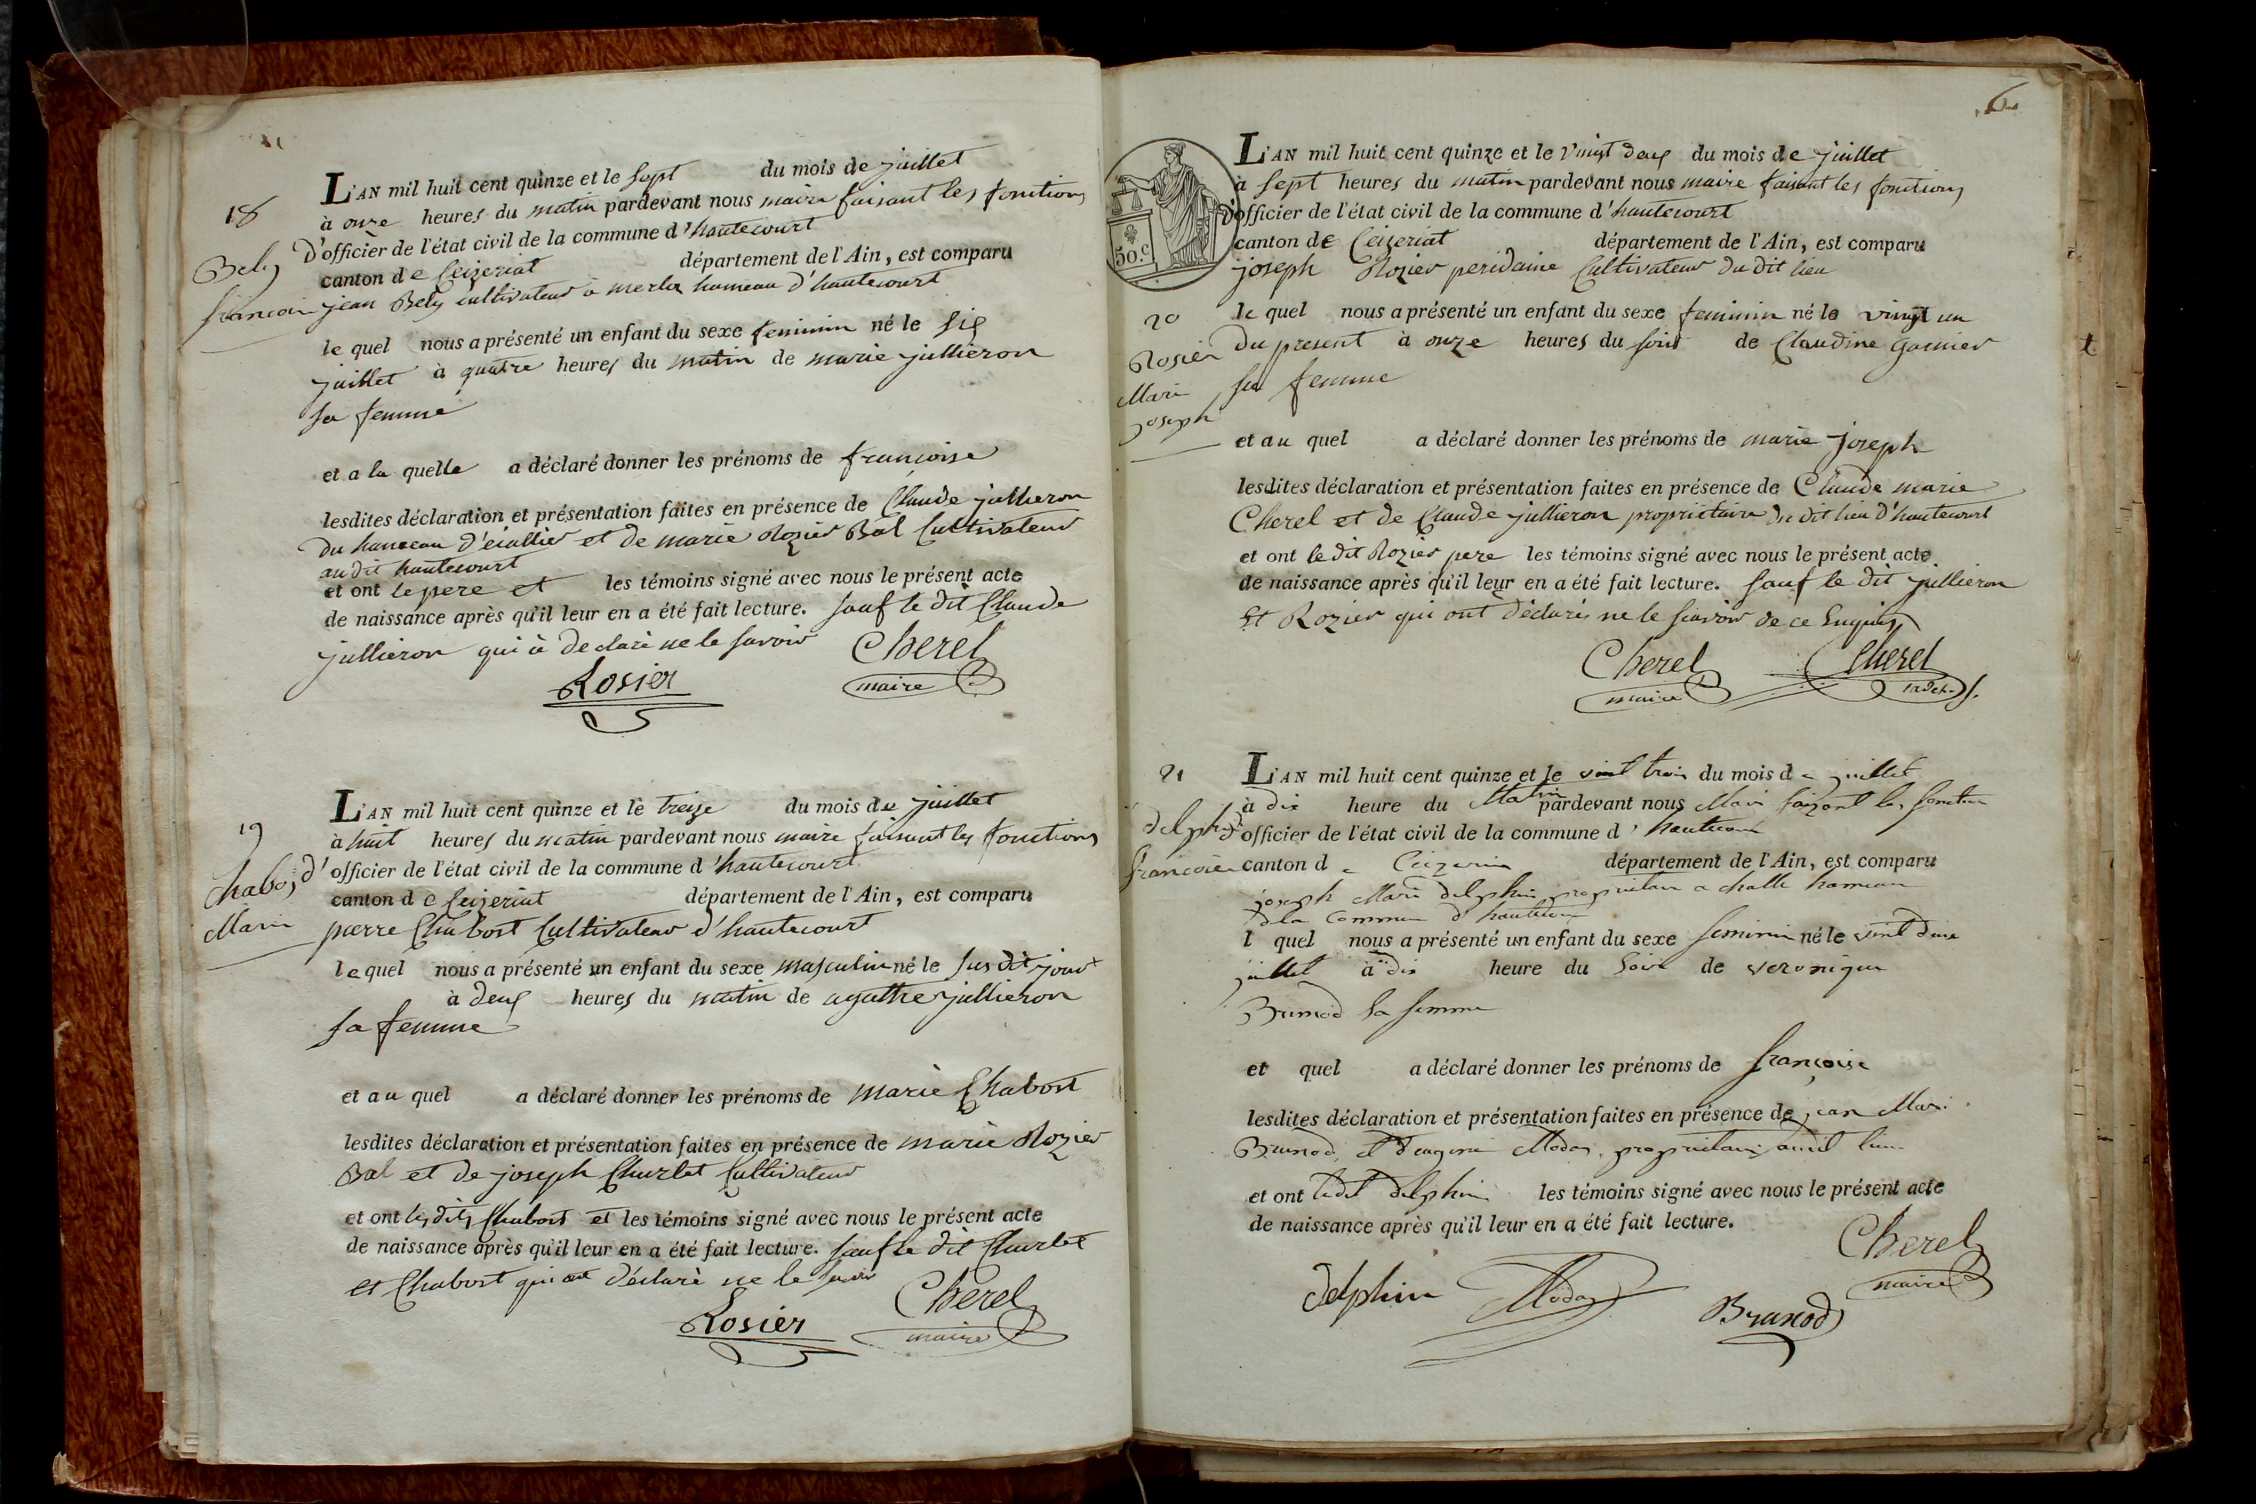 18
Bely
françoise
L'AN mil huit cent quinze et le sept du mois de juillet
à onze heures du matin pardevant nous maire faisant les fonctions
d'officier de l'état civil de la commune d'hautecourt
canton de Ceizeriat département de l'Ain, est comparu
jean Bely cultivateur à merloz hameau d'hautecourt
le quel nous a présenté un enfant du sexe feminin né le six
juillet à quatre heures du matin de marie jullieron
sa femme
et a la quelle a déclaré donner les prénoms de françoise
lesdites déclaration et présentation faites en présence de Claude jullieron
du hameau d'écallier et de marie Rozier Bal Cultivateur
au dit hautecourt
et ont le pere et les témoins signé avec nous le présent acte
de naissance après qu'il leur en a été fait lecture. sauf le dit Claude
jullieron qui à déclaré ne le savoir Cherel
Rosier maire
19
Chabost
Marie
L'AN mil huit cent quinze et le treize du mois de juillet
à huit heures du matin pardevant nous maire faisant les fonctions
d'officier de l'état civil de la commune d'hautecourt
canton de Ceizeriat département de l'Ain, est comparu
pierre Chabost Cultivateur d'hautecourt
le quel nous a présenté un enfant du sexe masculin né le sus dit jour
à deux heures du matin de agathe jullieron
sa femme
et au quel a déclaré donner les prénoms de marie Chabost
lesdites déclaration et présentation faites en présence de marie Rozier
Bal et de joseph Churlet Cultivateur
et ont les dits Chabost et les témoins signé avec nous le présent acte
de naissance après qu'il leur en a été fait lecture. sauf le dit Churlet
et Chabost qui ont déclaré ne le savoir
Rosier Cherel
maire
6
50.c
L'AN mil huit cent quinze et le vingt deux du mois de juillet
à sept heures du matin pardevant nous maire faisant les fonctions
d'officier de l'état civil de la commune d'hautecourt
canton de Ceizeriat département de l'Ain, est comparu
joseph Rozier Cultivateur du dit lieu
20
Rosier
Marie
joseph
le quel nous a présenté un enfant du sexe feminin né le vingt un
du present à onze heures du soir de Claudine
sa femme
et au quel a déclaré donner les prénoms de marie joseph
lesdites déclaration et présentation faites en présence de Claude marie
Cherel et de Claude jullieron proprietaire du dit lieu d'hautecourt
et ont le dit Rozier pere les témoins signé avec nous le présent acte
de naissance après qu'il leur en a été fait lecture. sauf le dit jullieron
et Rozier qui ont déclarés ne le scavoir de ce Enquis
Cherel Cherel
maire
21
delphin
francoise
L'AN mil huit cent quinze et le vint trois du mois de juillet
à dix heure du Matin pardevant nous Maire faizant les fonction
d'officier de l'état civil de la commune d'hautecourt
canton de département de l'Ain, est comparu
joseph Marie delphin proprietaire a challe hameau
de la Commune d'hautecourt
l quel nous a présenté un enfant du sexe feminin né le vint deux
juillet à dix heure du soir de veronique
Brunod sa femme
et quel a déclaré donner les prénoms de françoise
lesdites déclaration et présentation faites en présence de jean Marie
Brunod et proprietaire
et ont ledit delphin les témoins signé avec nous le présent acte
de naissance après qu'il leur en a été fait lecture.
Cherel
maire
delphin Brunod